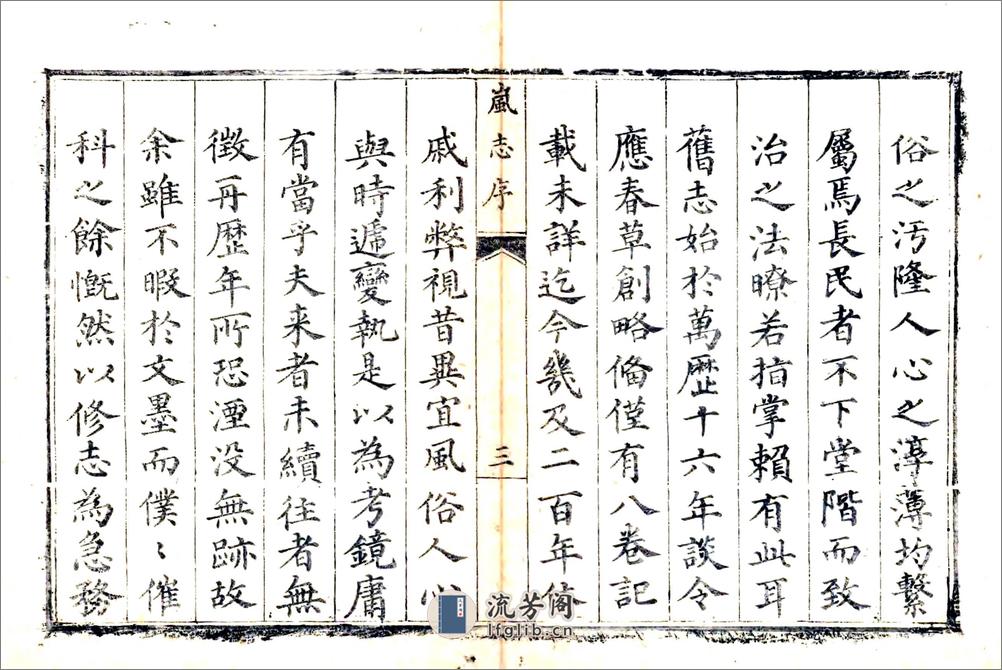 俗之汚隆人心之淳薄均繫
屬焉長民者不下堂階而致
治之法瞭若指掌賴有此耳
舊志始於萬歷十六年談令
應春草創略備僅有八卷記
載未詳迄今幾及二百年
嵐志序
三
戚利弊視昔異宜風俗人心
與時遞變執是以為考鏡庸
有當乎夫来者未續往者無
徵再歷年所恐湮没無跡故
余雖不暇於文墨而僕〻催
科之餘慨然以修志為急務
流芳阁
lfglib.cn